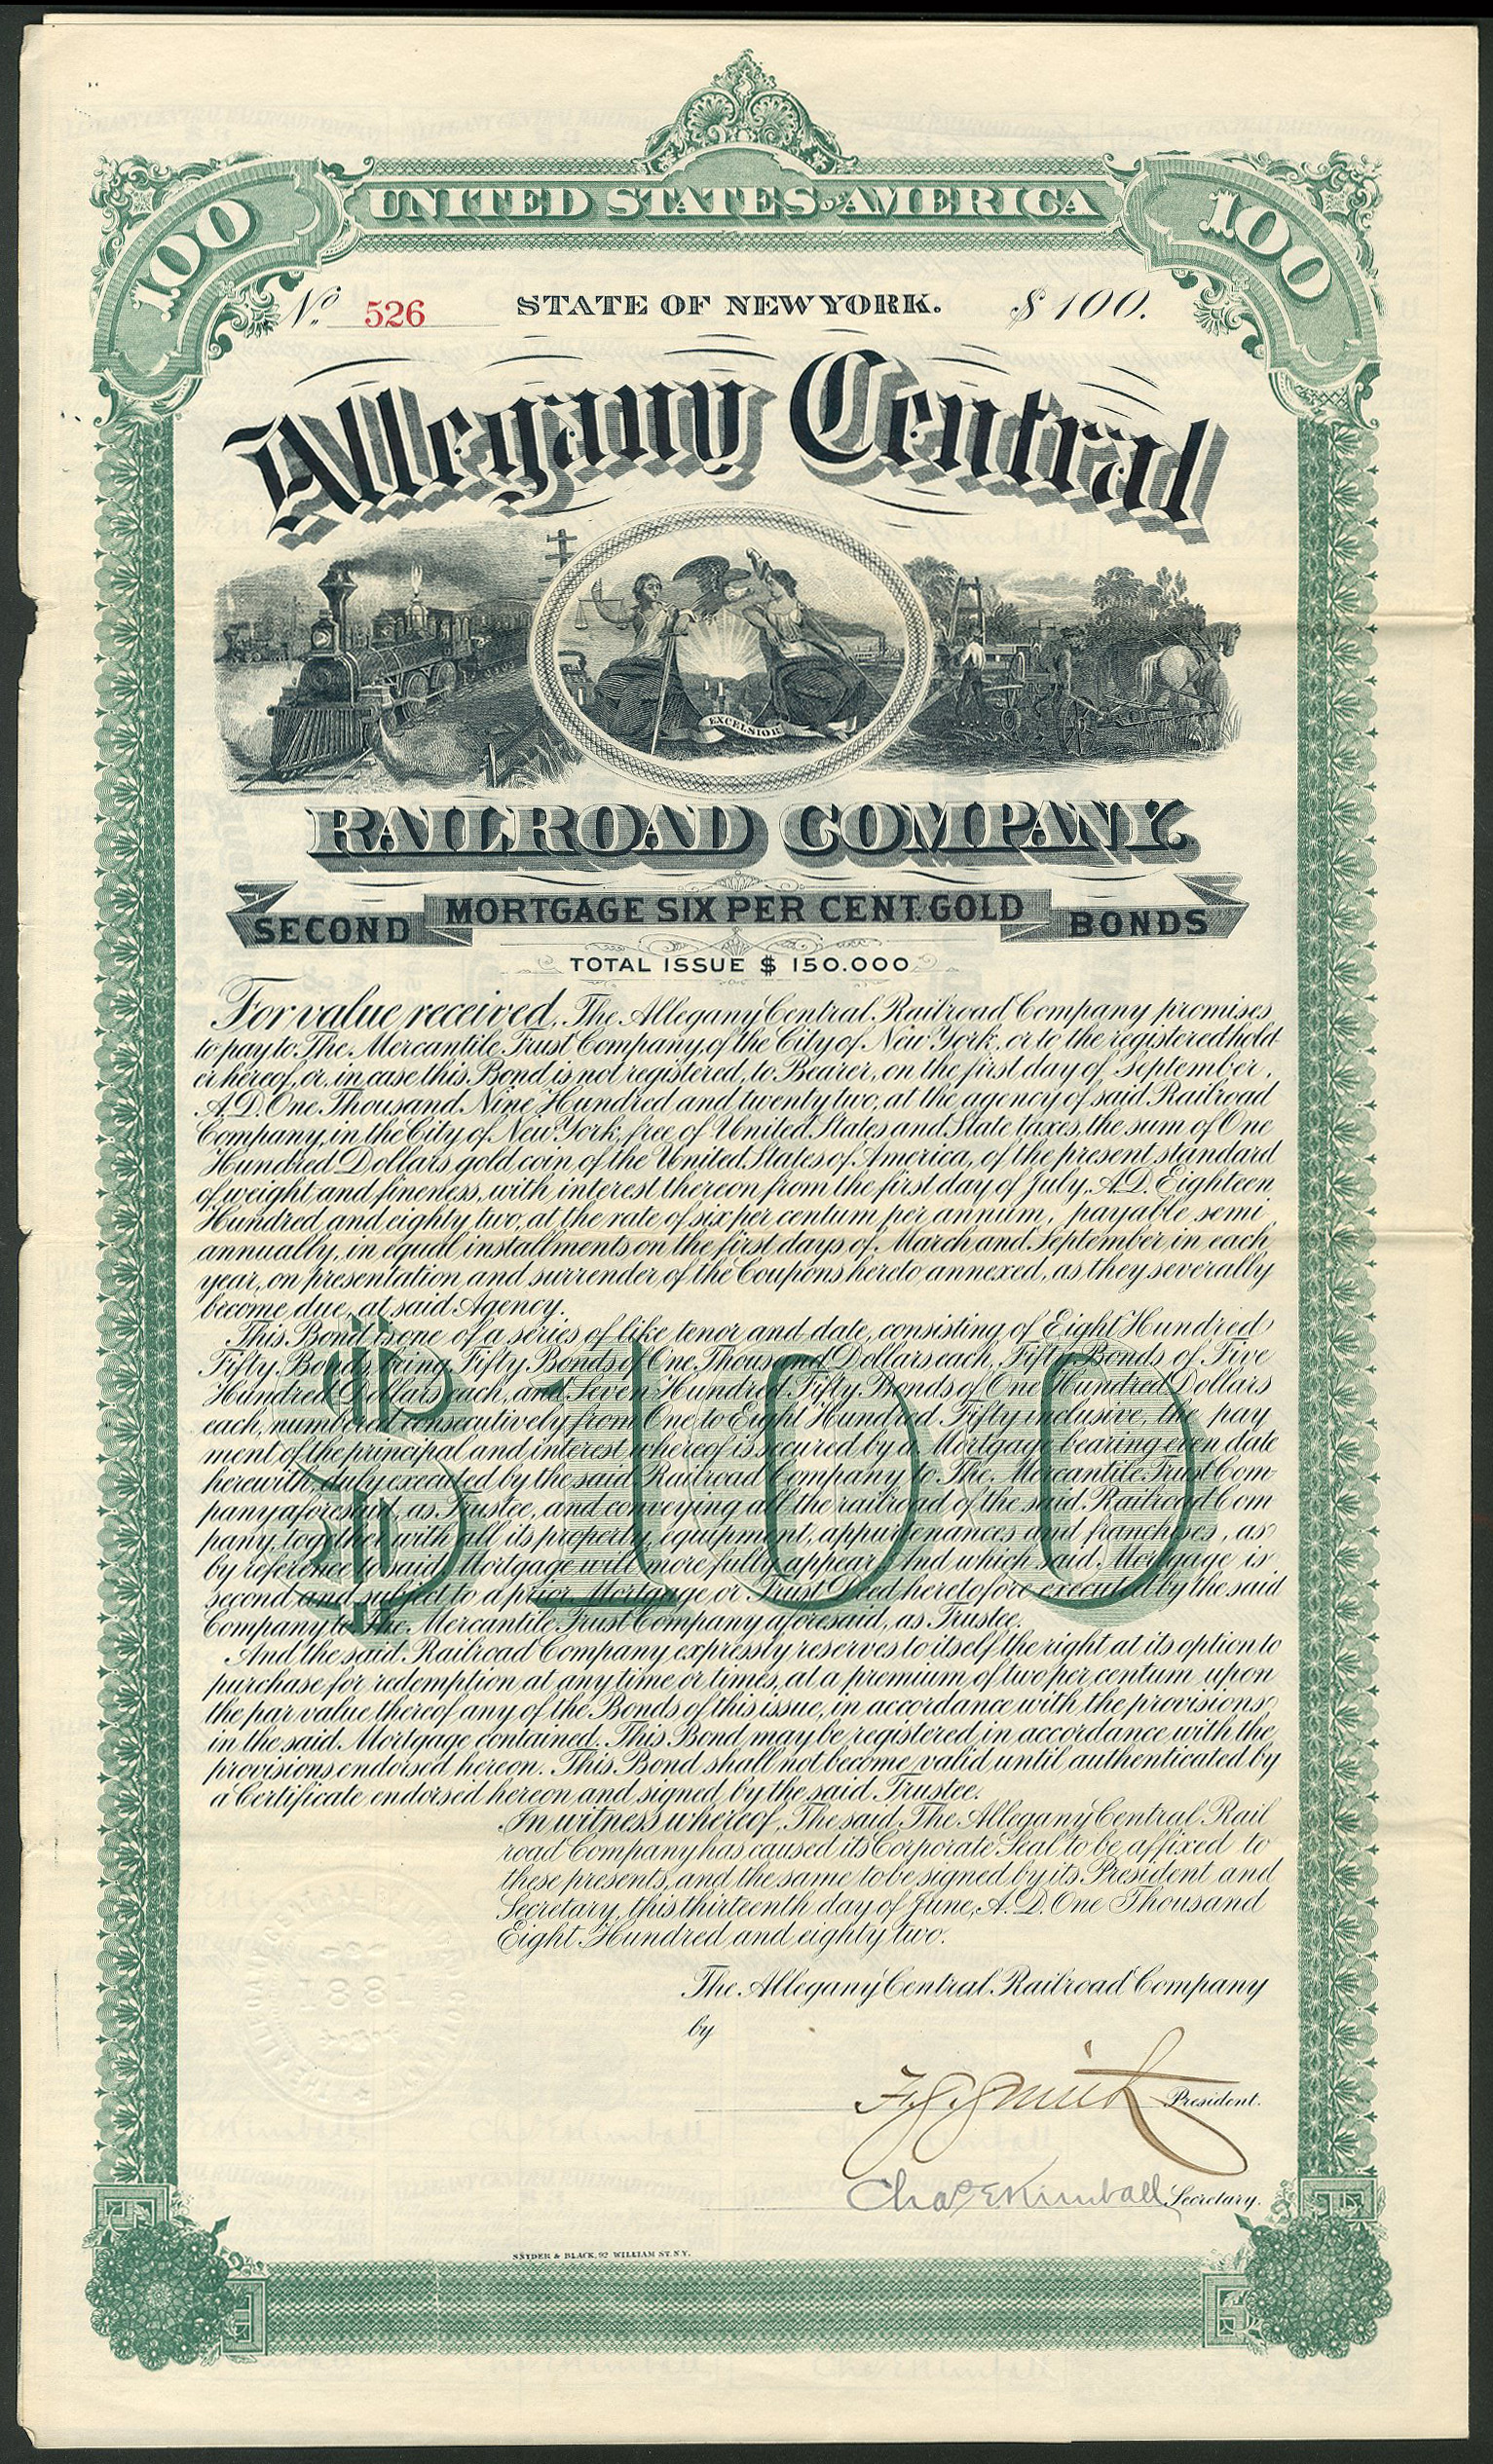 UNITED STATES OF AMERICA
100
100
No. 526
STATE OF NEW YORK.
$100.
Allegany Central
EXCELSIOR
RAILROAD COMPANY.
SECOND MORTGAGE SIX PER CENT. GOLD BONDS
TOTAL ISSUE $150.000
For value received, The Allegany Central Railroad Company promises
to pay to The Mercantile Trust Company, of the City of New York, or to the registered hold-
er hereof, or, in case this Bond is not registered, to Bearer, on the first day of September,
A.D. One Thousand Nine Hundred and twenty two, at the agency of said Railroad
Company, in the City of New York, free of United States and State taxes, the sum of One
Hundred Dollars gold coin, of the United States of America, of the present standard
of weight and fineness, with interest thereon from the first day of July, A.D. Eighteen
Hundred and eighty two, at the rate of six per centum per annum, payable semi
annually, in equal installments on the first days of March and September in each
year, on presentation and surrender of the Coupons hereto annexed, as they severally
become due, at said Agency.
This Bond is one of a series of like tenor and date, consisting of Eight Hundred
Fifty Bonds, being Fifty Bonds of One Thousand Dollars each, Fifty Bonds of Five
Hundred Dollars each, and Seven Hundred Fifty Bonds of One Hundred Dollars
each, numbered consecutively from One to Eight Hundred Fifty inclusive, the pay
ment of the principal and interest whereof is secured by a Mortgage bearing even date
herewith, duly executed by the said Railroad Company to The Mercantile Trust Com-
pany aforesaid, as Trustee, and conveying all the railroad of the said Railroad Com
pany, together with all its property, equipment, appurtenances and franchises, as
by reference to said Mortgage will more fully appear, And which said Mortgage is
second and subject to a prior Mortgage or Trust Deed heretofore executed by the said
Company to The Mercantile Trust Company aforesaid, as Trustee.
$100
And the said Railroad Company expressly reserves to itself the right at its option to
purchase for redemption at any time or times, at a premium of two per centum upon
the par value thereof any of the Bonds of this issue, in accordance with the provisions
in the said Mortgage contained. This Bond may be registered in accordance with the
provisions endorsed hereon. This Bond shall not become valid until authenticated by
a Certificate endorsed hereon and signed by the said Trustee.
In witness whereof, The said, The Allegany Central Rail
road Company has caused its Corporate Seal to be affixed to
these presents, and the same to be signed by its President and
Secretary, this thirteenth day of June, A.D. One Thousand
Eight Hundred and eighty two.
The Allegany Central Railroad Company
by
1881
F. S. Smith President.
Chas E Kimball Secretary.
SNYDER & BLACK, 92 WILLIAM ST. N.Y.